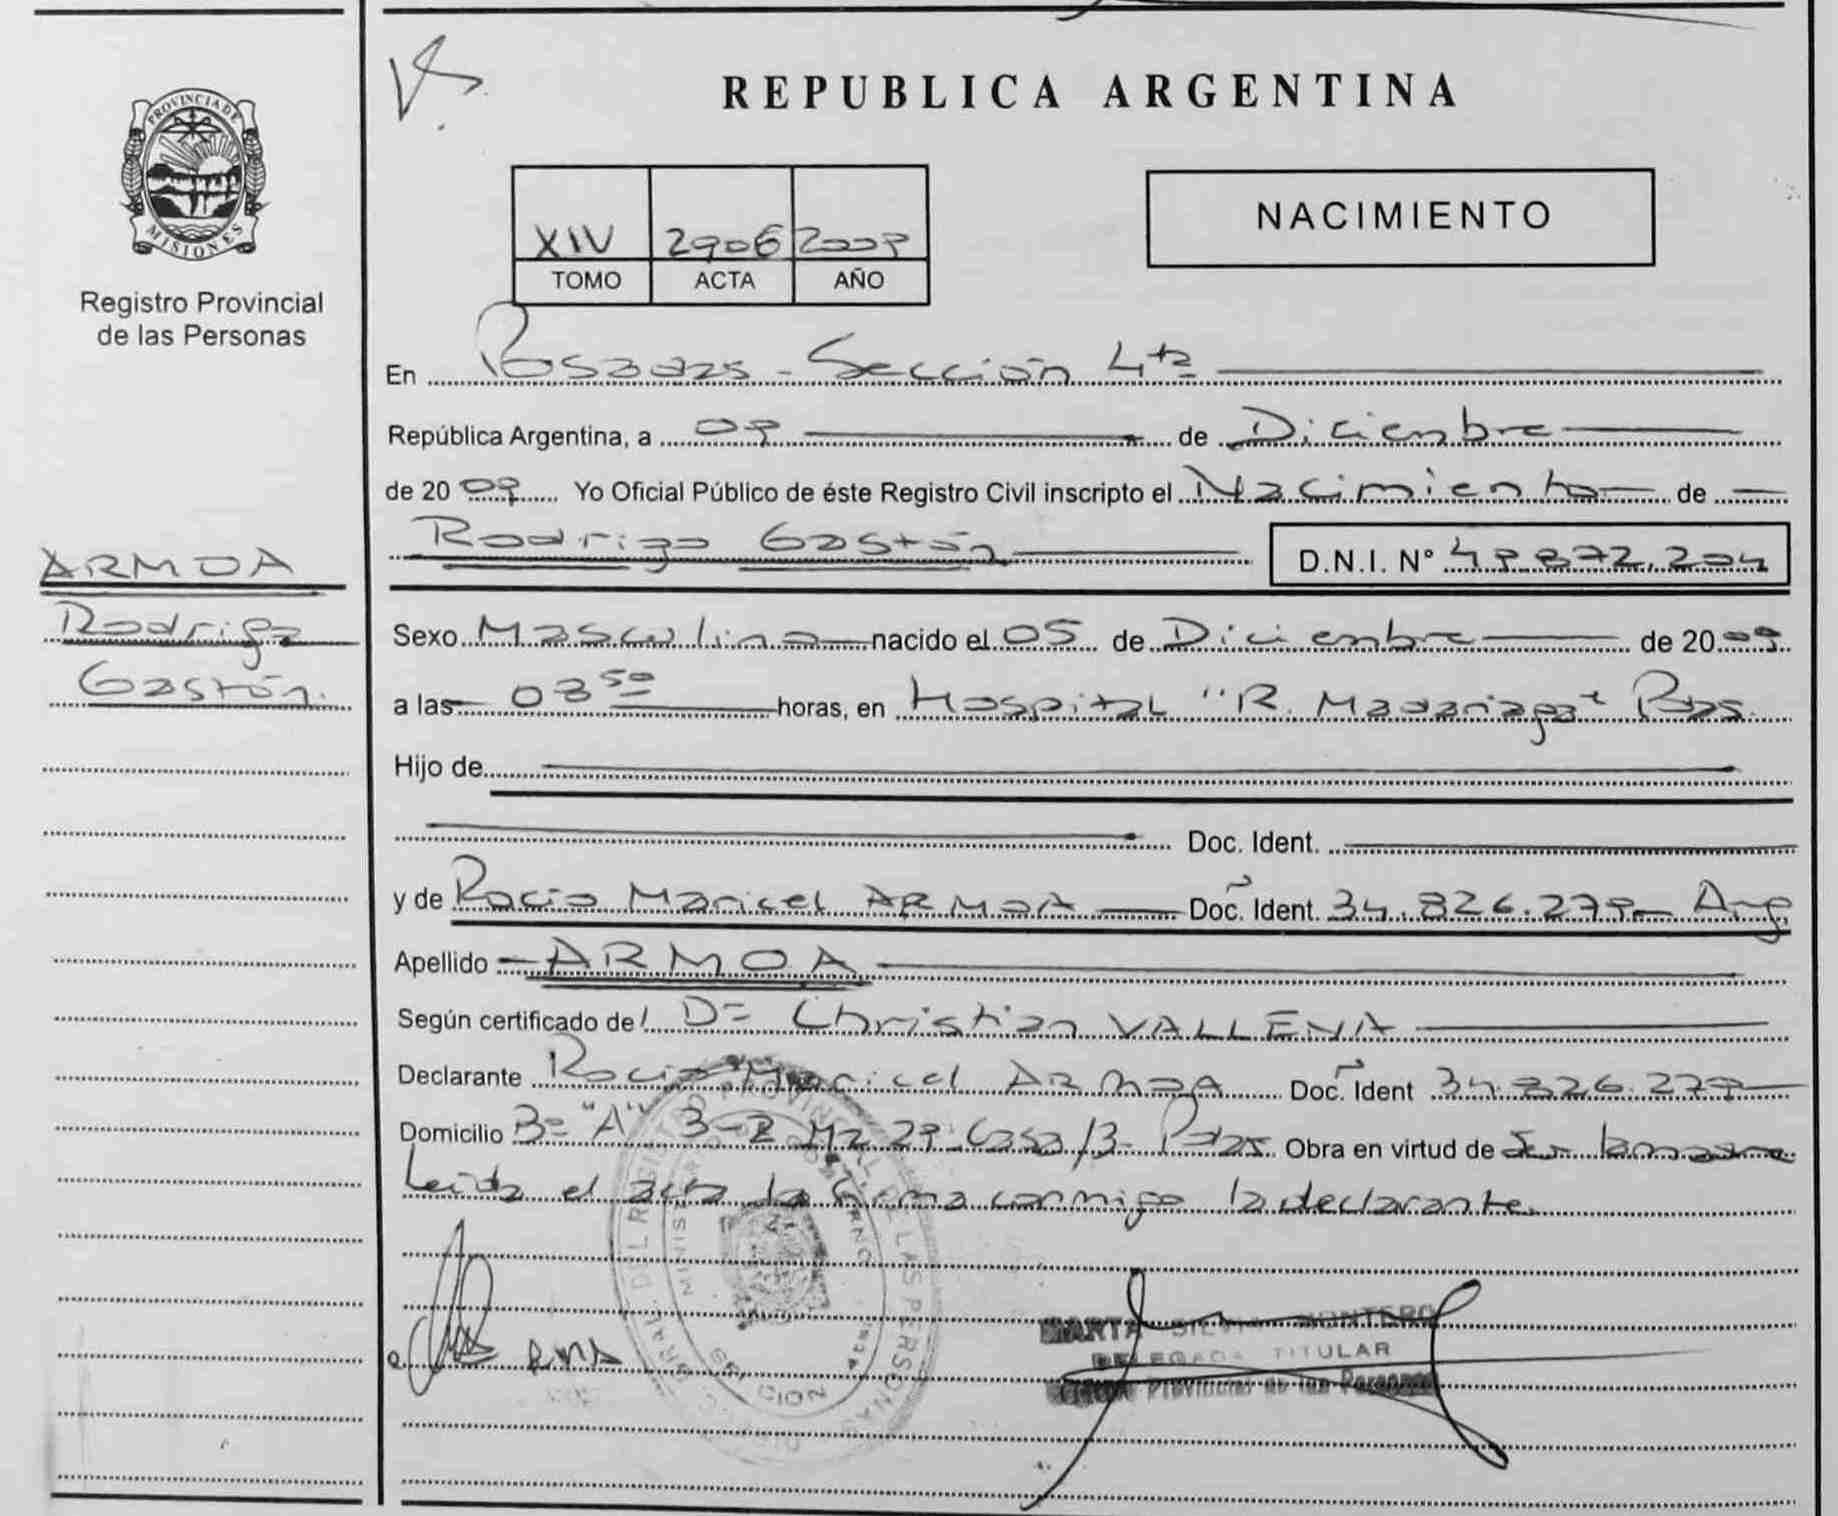 PROVINCIA DE
MISIONES
Registro Provincial
de las Personas
ARMOA
Rodrigo
Gastón.
REPUBLICA ARGENTINA
XIV 2906 2009
TOMO ACTA AÑO
NACIMIENTO
En Posadas - Sección 4ta
República Argentina, a 09 de Diciembre
de 2009 Yo Oficial Público de éste Registro Civil inscripto el Nacimiento de
Rodrigo Gastón D.N.I. N° 49.872.204
Sexo Masculino nacido el 05 de Diciembre de 2009
a las 03 50 horas, en Hospital "R. Madariaga" Pdas.
Hijo de
Doc. Ident.
y de Rocio Maricel ARMOA Doc. Ident. 34.826.279 Arg.
Apellido ARMOA
Según certificado del Dr Christian VALLENA
Declarante Rocio Maricel ARMOA Doc. Ident 34.826.279
Domicilio Bº "A" 3-2 Mz 29 - Casa 13 - Pdas. Obra en virtud de Ser la madre
Leída el acta la firma conmigo la declarante.
MARTA SILVIA MONTERO
DELEGADA TITULAR
Provincial de las Personas